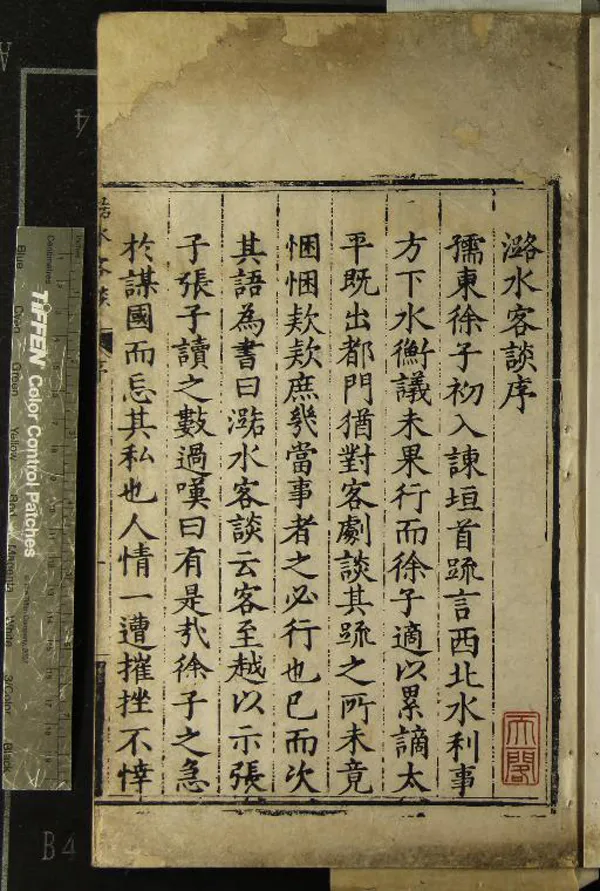 潞水客談序
孺東徐子初入諫垣首䟽言西北水利事
方下水衡議未果行而徐子適以累謫太
平既出都門猶對客劇談其䟽之所未竟
悃悃欵欵庶幾當事者之必行也已而次
其語為書曰潞水客談云客至越以示張
子張子讀之數過嘆曰有是㢤徐子之急
於謀國而忘其私也人情一遭摧挫不悻
潞水客談
序
天閣
TIFFEN Color Control Patches
Blue
Cyan
Green
Yellow
Red
Magenta
White
3/Color
Black
B4
4
A